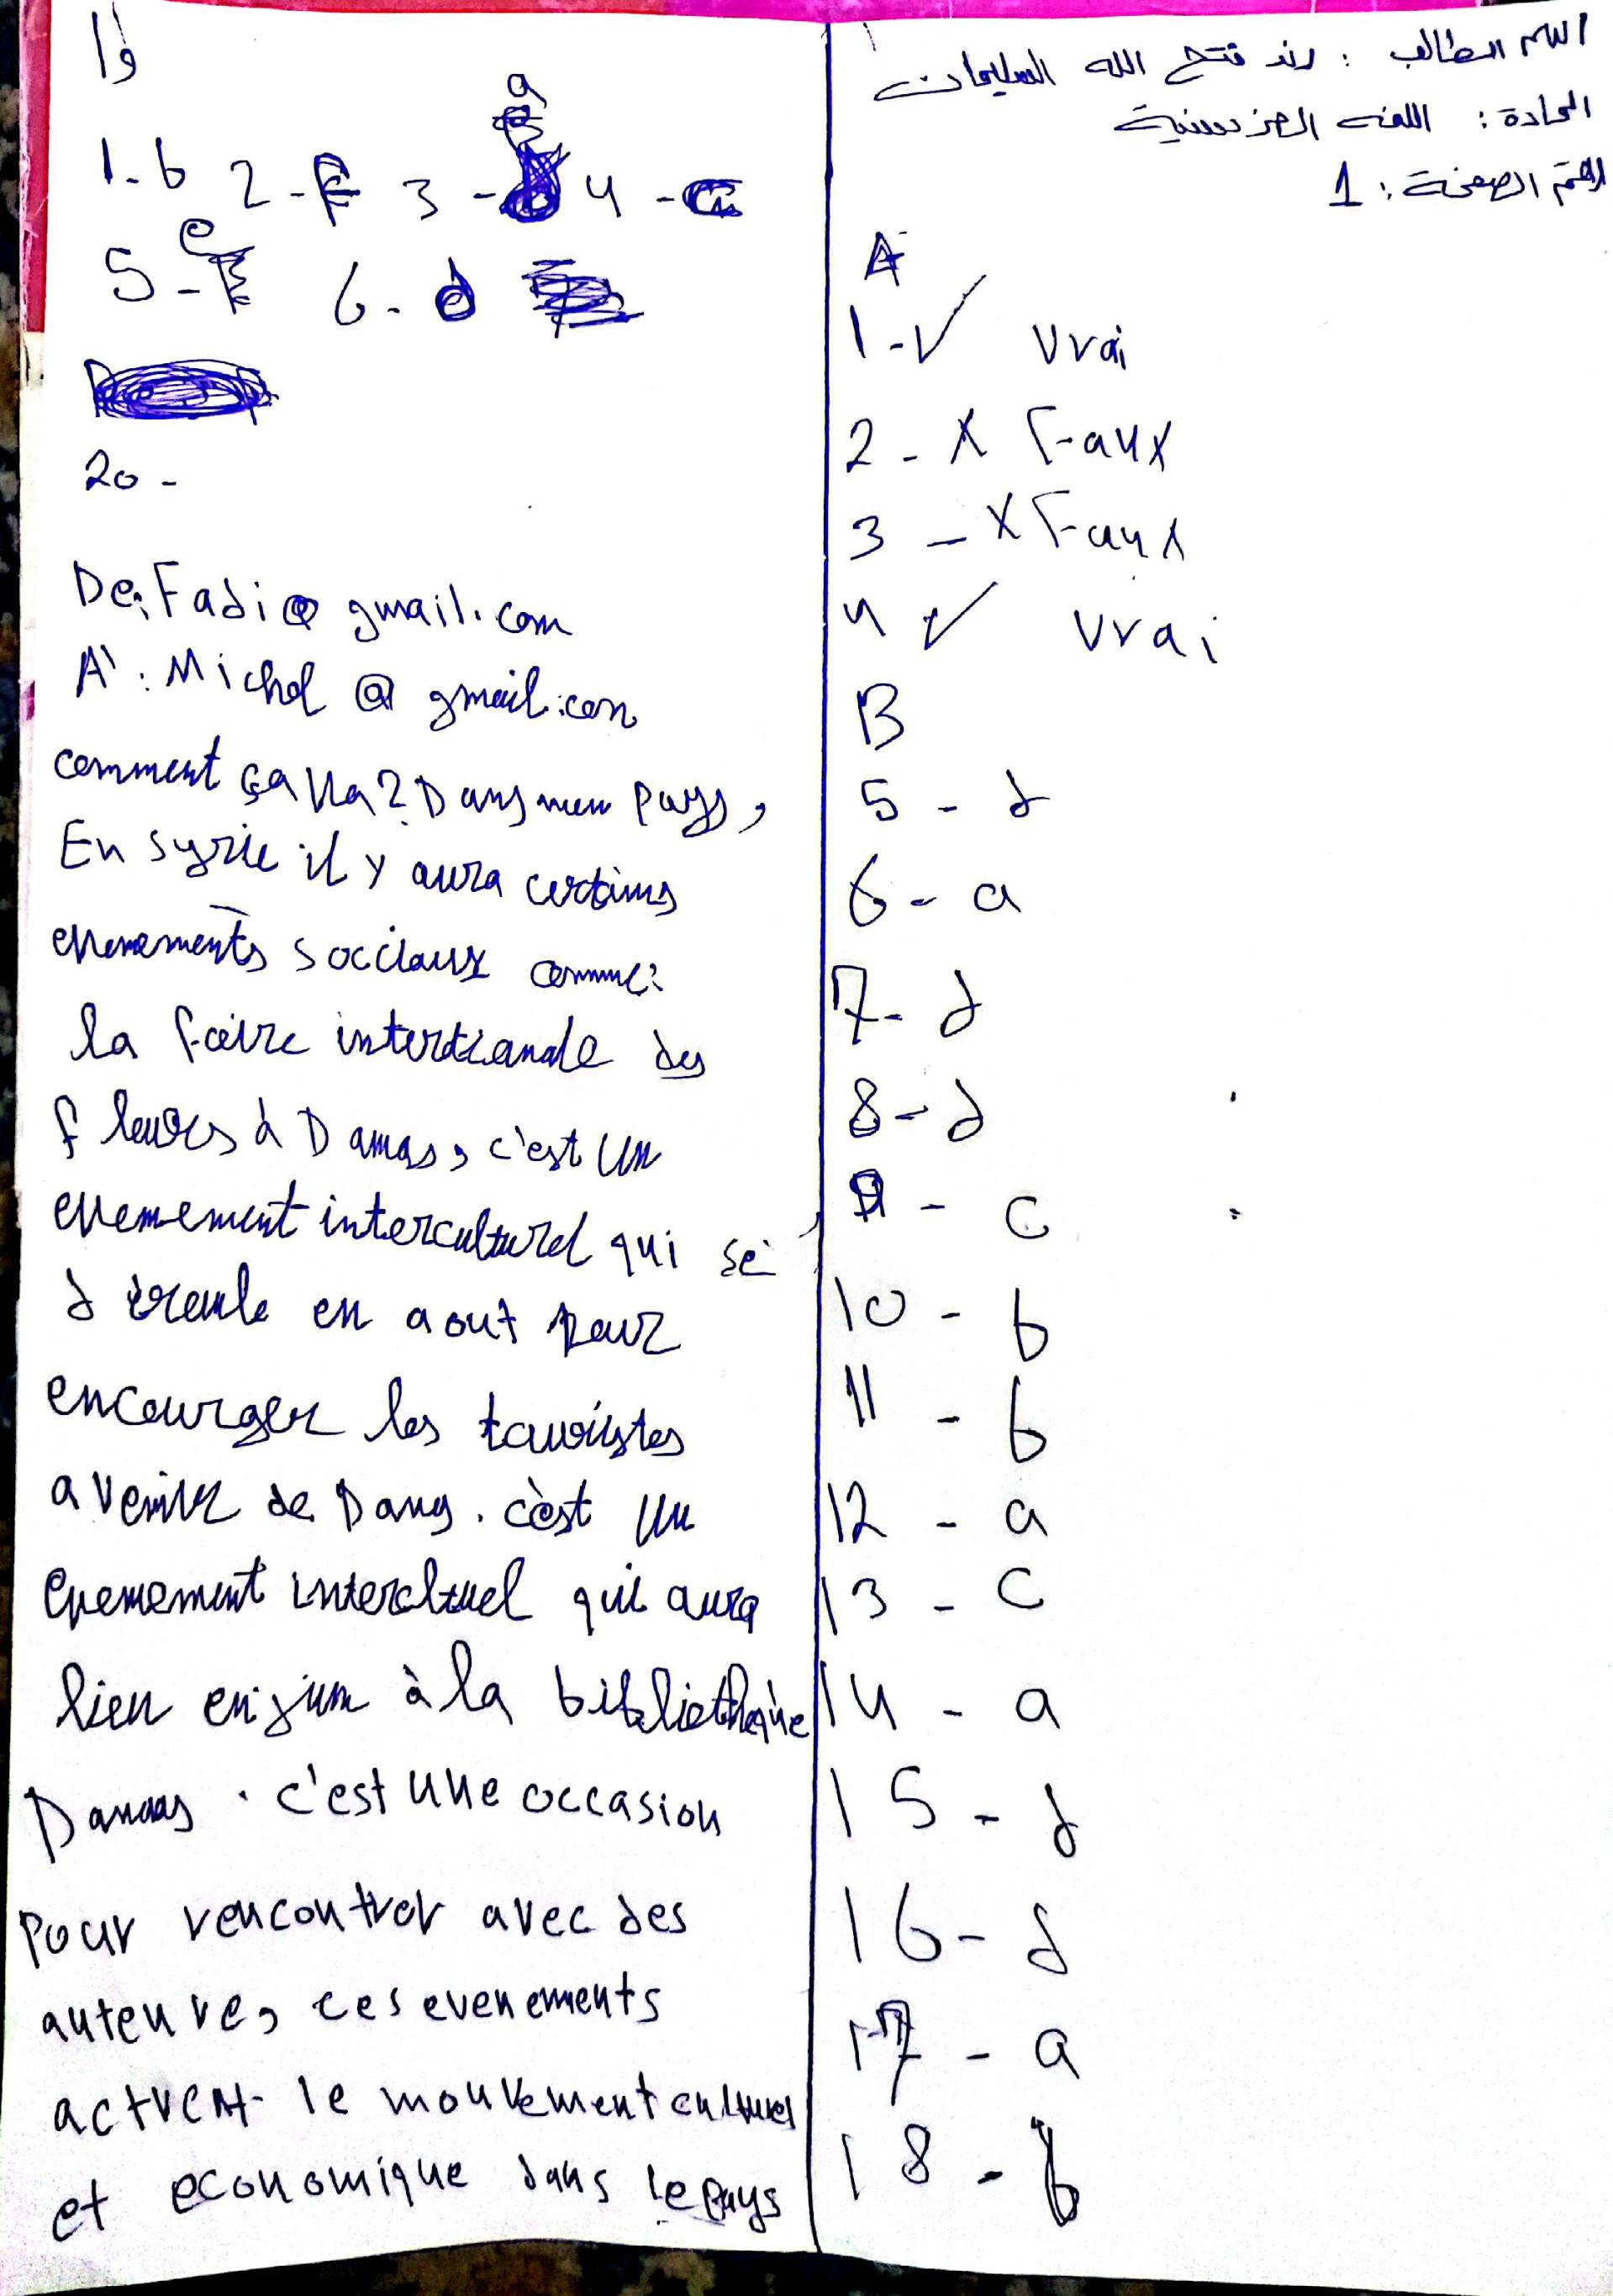 اسم الطالب : رند فتح الله السليمان
المادة : اللغه الفرنسية
رقم الصفحة : 1
A
1 - ✓ Vrai
2 - X Faux
3 - X Faux
4 ✓ Vrai
B
5 - d
6 - a
7 - d
8 - d
9 - c
10 - b
11 - b
12 - a
13 - c
14 - a
15 - d
16 - d
17 - a
18 - b
19
1 - b 2 - F 3 - a 4 - c
5 - e 6 - d
20 -
De: Fadi@gmail.com
A': Michel @ gmail.com
comment ça va? Dans mon pays,
En syrie il y aura certains
evenements socciaux comme:
la foire intertianale des
fleures à Damas, c'est un
evenement interculturel qui se
déroule en aout pour
encourger les touristes
a venir de Damas. c'est un
evenement intercltuel qui aura
lieu en juin à la bibliothèque
Damas. c'est une occasion
pour rencontrer avec des
auteure, ces evenements
activent le mouvement culturel
et economique dans le pays